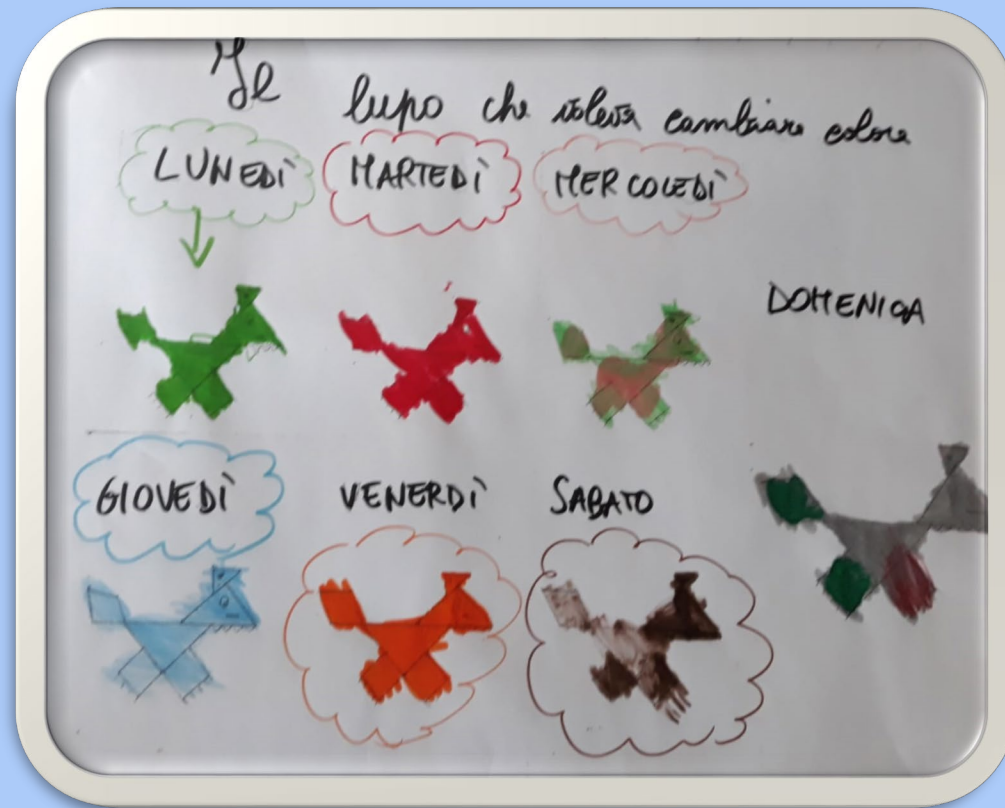 Il lupo che voleva cambiare colore
LUNEDÌ MARTEDÌ MERCOLEDÌ
DOMENICA
GIOVEDÌ VENERDÌ SABATO